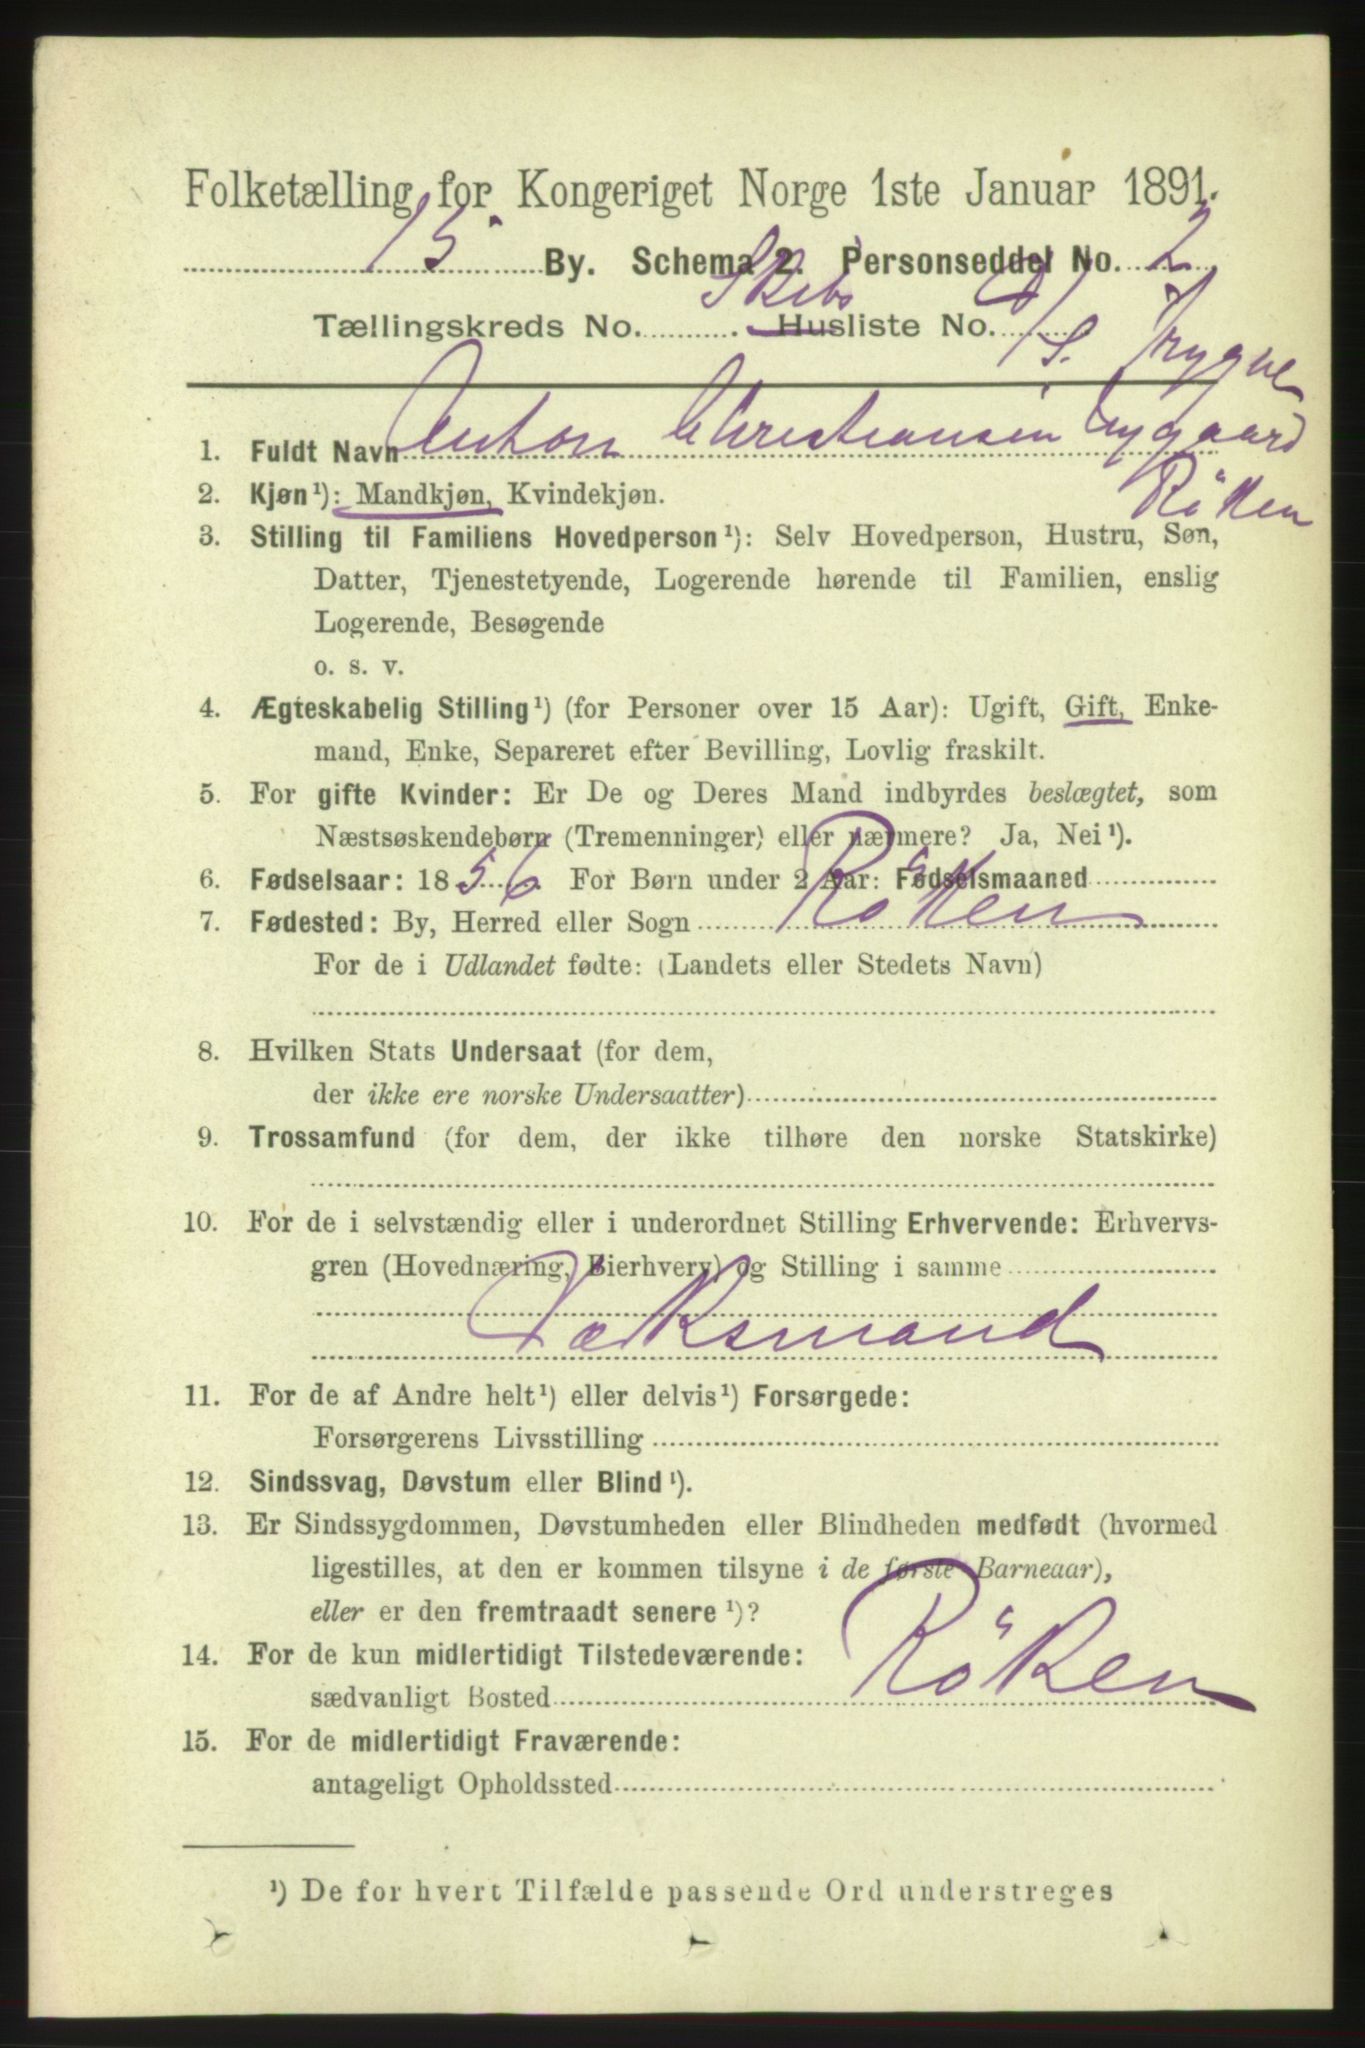 Folketælling for Kongeriget Norge 1ste Januar 1891.
15 By. Schema 2. Personseddel No. 2
Skibs D/S. Trygve
Tællingskreds No. Husliste No.
1. Fuldt Navn Anton Christiansen
Röken
2. Kjøn¹): Mandkjøn, Kvindekjøn.
3. Stilling til Familiens Hovedperson¹): Selv Hovedperson, Hustru, Søn,
Datter, Tjenestetyende, Logerende hørende til Familien, enslig
Logerende, Besøgende
o. s. v.
4. Ægteskabelig Stilling¹) (for Personer over 15 Aar): Ugift, Gift, Enke-
mand, Enke, Separeret efter Bevilling, Lovlig fraskilt.
5. For gifte Kvinder: Er De og Deres Mand indbyrdes beslægtet, som
Næstsøskendebørn (Tremenninger) eller nærmere? Ja, Nei¹).
6. Fødselsaar: 1856. For Børn under 2 Aar: Fødselsmaaned
7. Fødested: By, Herred eller Sogn Röken
For de i Udlandet fødte: (Landets eller Stedets Navn)
8. Hvilken Stats Undersaat (for dem,
der ikke ere norske Undersaatter)
9. Trossamfund (for dem, der ikke tilhøre den norske Statskirke)
10. For de i selvstændig eller i underordnet Stilling Erhvervende: Erhvervs-
gren (Hovednæring, Bierhverv) og Stilling i samme
Dæksmand
11. For de af Andre helt¹) eller delvis¹) Forsørgede:
Forsørgerens Livsstilling
12. Sindssvag, Døvstum eller Blind¹).
13. Er Sindssygdommen, Døvstumheden eller Blindheden medfødt (hvormed
ligestilles, at den er kommen tilsyne i de første Barneaar),
eller er den fremtraadt senere¹)?
14. For de kun midlertidigt Tilstedeværende:
sædvanligt Bosted Röken
15. For de midlertidigt Fraværende:
antageligt Opholdssted
¹) De for hvert Tilfælde passende Ord understreges